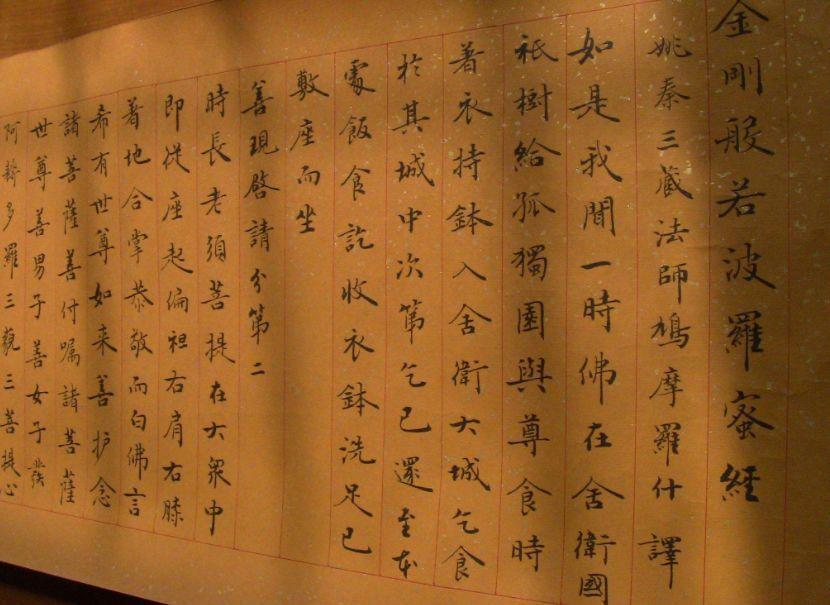 金剛般若波羅蜜經
姚秦三藏法師鳩摩羅什譯
如是我聞一時佛在舍衛國
祇樹給孤獨園與尊食時
著衣持鉢入舍衛大城乞食
於其城中次第乞已還至本
處飯食訖收衣鉢洗足已
敷座而坐
善現啓請分第二
時長老須菩提在大衆中
即從座起偏袒右肩右膝
着地合掌恭敬而白佛言
希有世尊如来善护念
諸菩薩善付嘱諸菩薩
世尊善男子善女子發
阿耨多羅三藐三菩提心